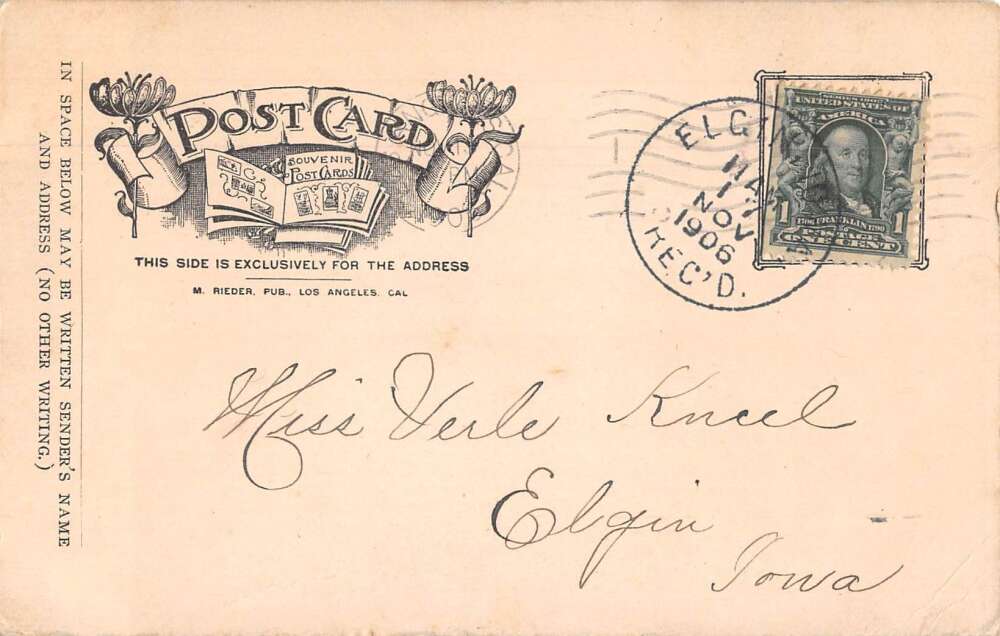 POST CARD
SOUVENIR
POST CARDS
THIS SIDE IS EXCLUSIVELY FOR THE ADDRESS
M. RIEDER, PUB., LOS ANGELES, CAL
IN SPACE BELOW MAY BE WRITTEN SENDER'S NAME
AND ADDRESS (NO OTHER WRITING.)
ELGIN
NOV
1906
REC'D.
SERIES 1902
UNITED STATES OF
AMERICA
1706 FRANKLIN 1790
1 POSTAGE 1
ONE CENT
Miss Verle Kneel
Elgin
Iowa